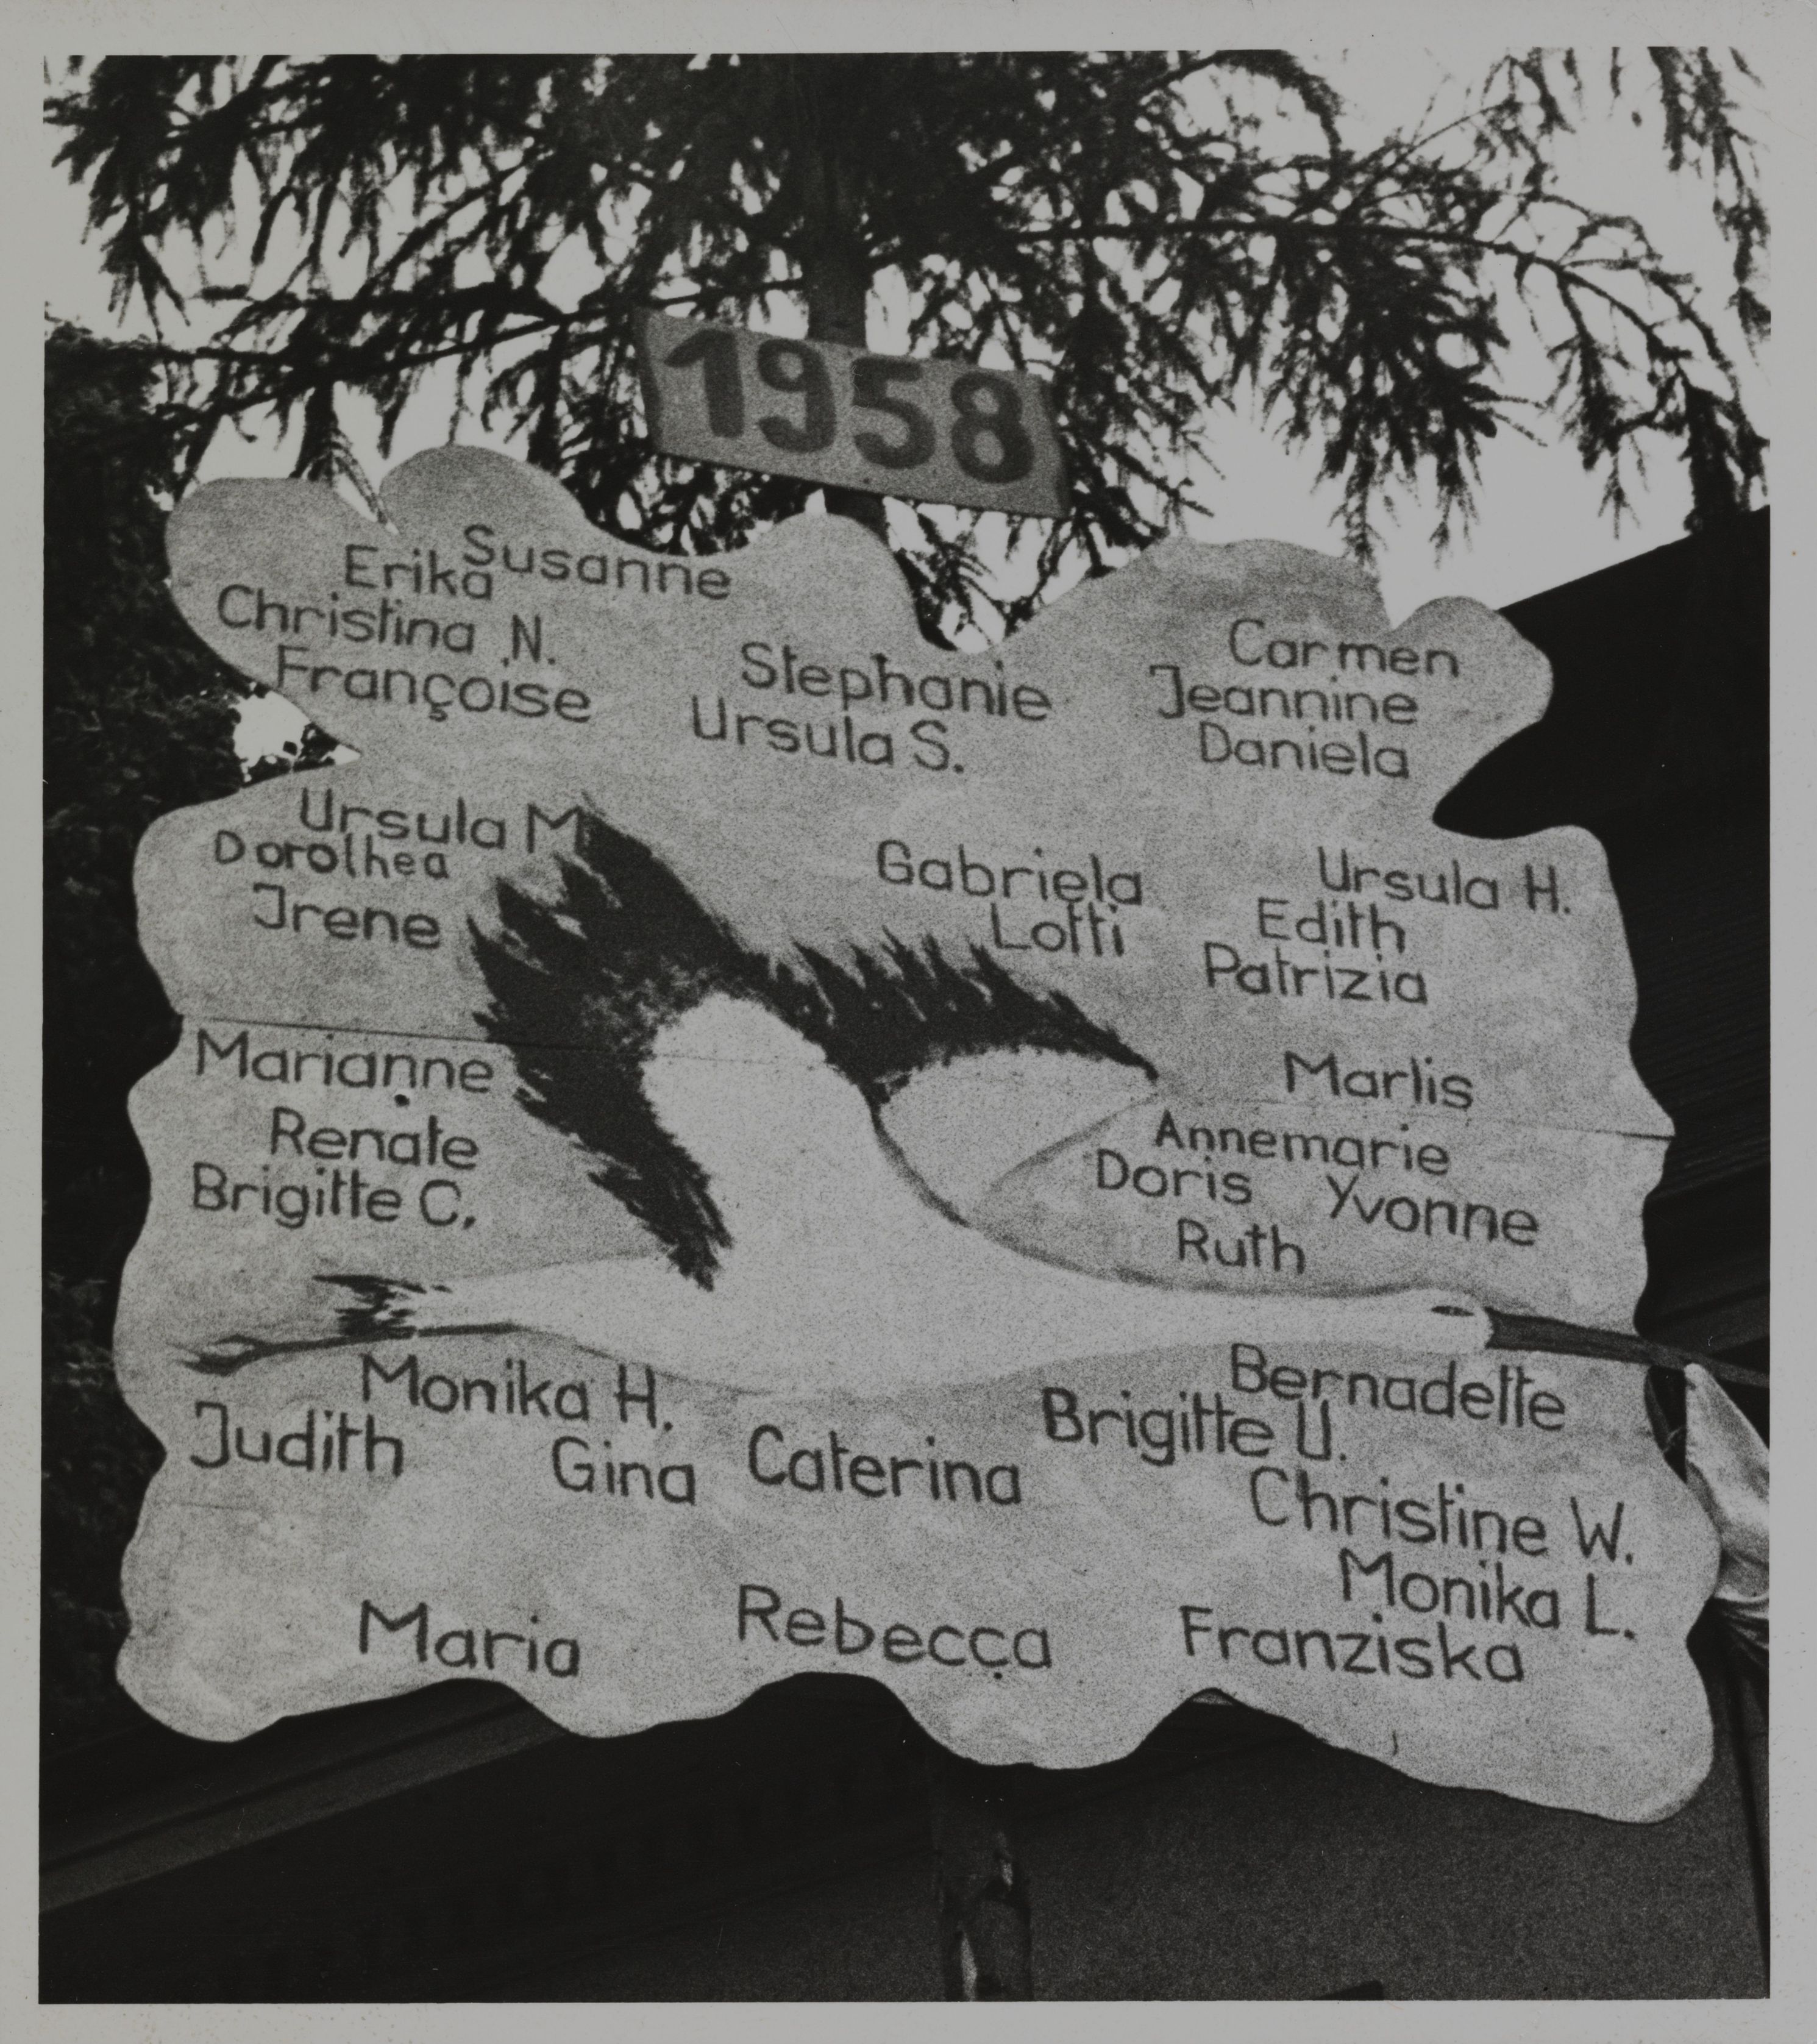 1958
Susanne
Erika
Christina N.
Françoise
Stephanie
Ursula S.
Carmen
Jeannine
Daniela
Ursula M.
Dorothea
Irene
Gabriela
Lotti
Ursula H.
Edith
Patrizia
Marianne
Renate
Brigitte C.
Marlis
Annemarie
Doris Yvonne
Ruth
Monika H.
Judith
Gina
Caterina
Bernadette
Brigitte U.
Christine W.
Monika L.
Franziska
Maria
Rebecca